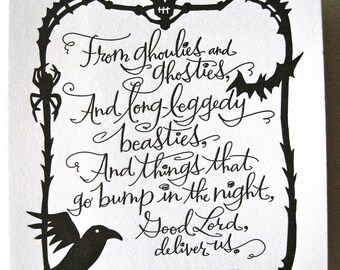 From ghoulies and
ghosties,
And long-leggedy
beasties,
And things that
go bump in the night,
Good Lord,
deliver us.